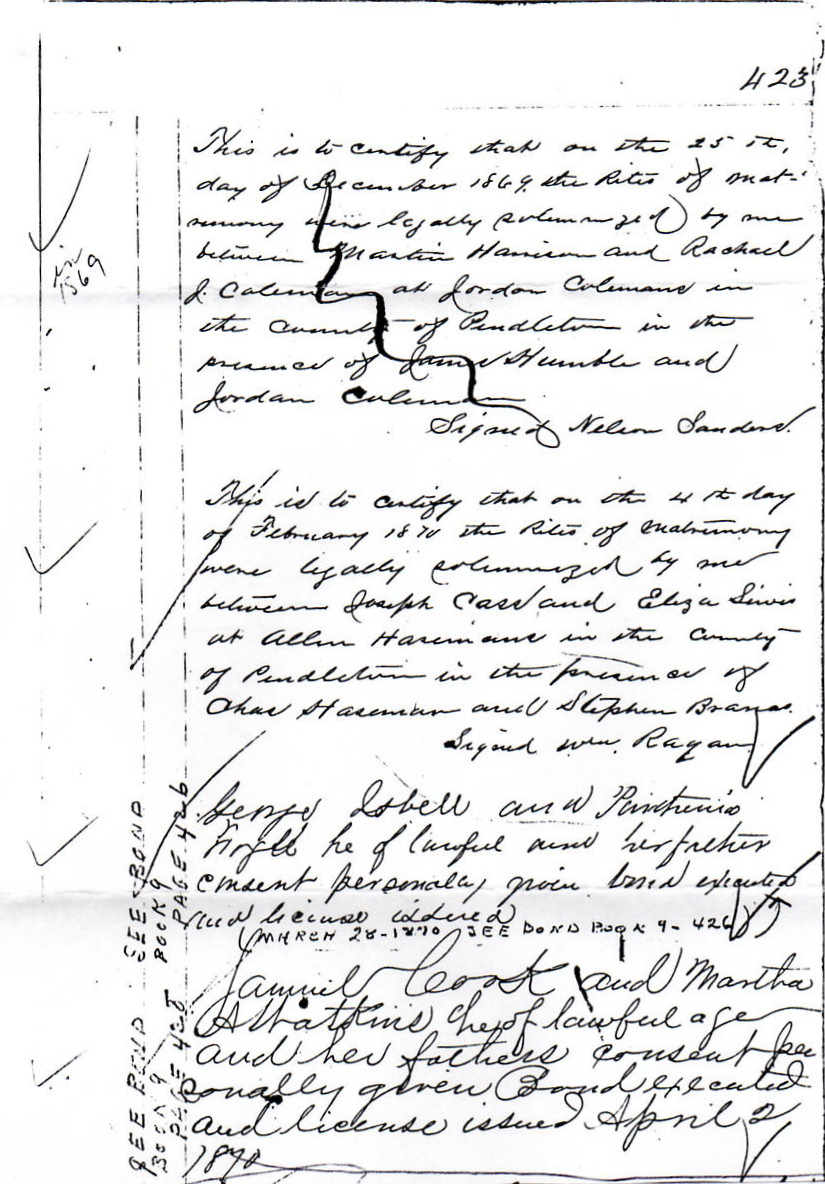 423
This is to certify that on the 25 th,
day of December 1869, the Rites of Mat-
rimony were legally solemnized by me
between Martin Harrison and Rachael
J. Coleman at Jordan Colemans in
the County of Pendleton in the
presence of James Humble and
Jordan Coleman
Signed Nelson Sanders.
1869
This is to certify that on the 4 th day
of February 1870 the Rites of Matrimony
were legally solemnized by me
between Joseph Cass and Eliza
at Allen Hasemans in the County
of Pendleton in the presence of
Chas Haseman and Stephen
Signed Wm. Ragan
George Isbell and
he of lawful and her father
consent personaly given bond executed
and license isdered
(MARCH 28-1870 SEE BOND BOOK 9-426)
Samuel Cook and Martha
he of lawful age
and her fathers consent per
sonally given Bond executed
and license issued April 2
1870
SEE BOND
BOOK 9
PAGE 426
SEE BOND
BOOK 9
PAGE 428